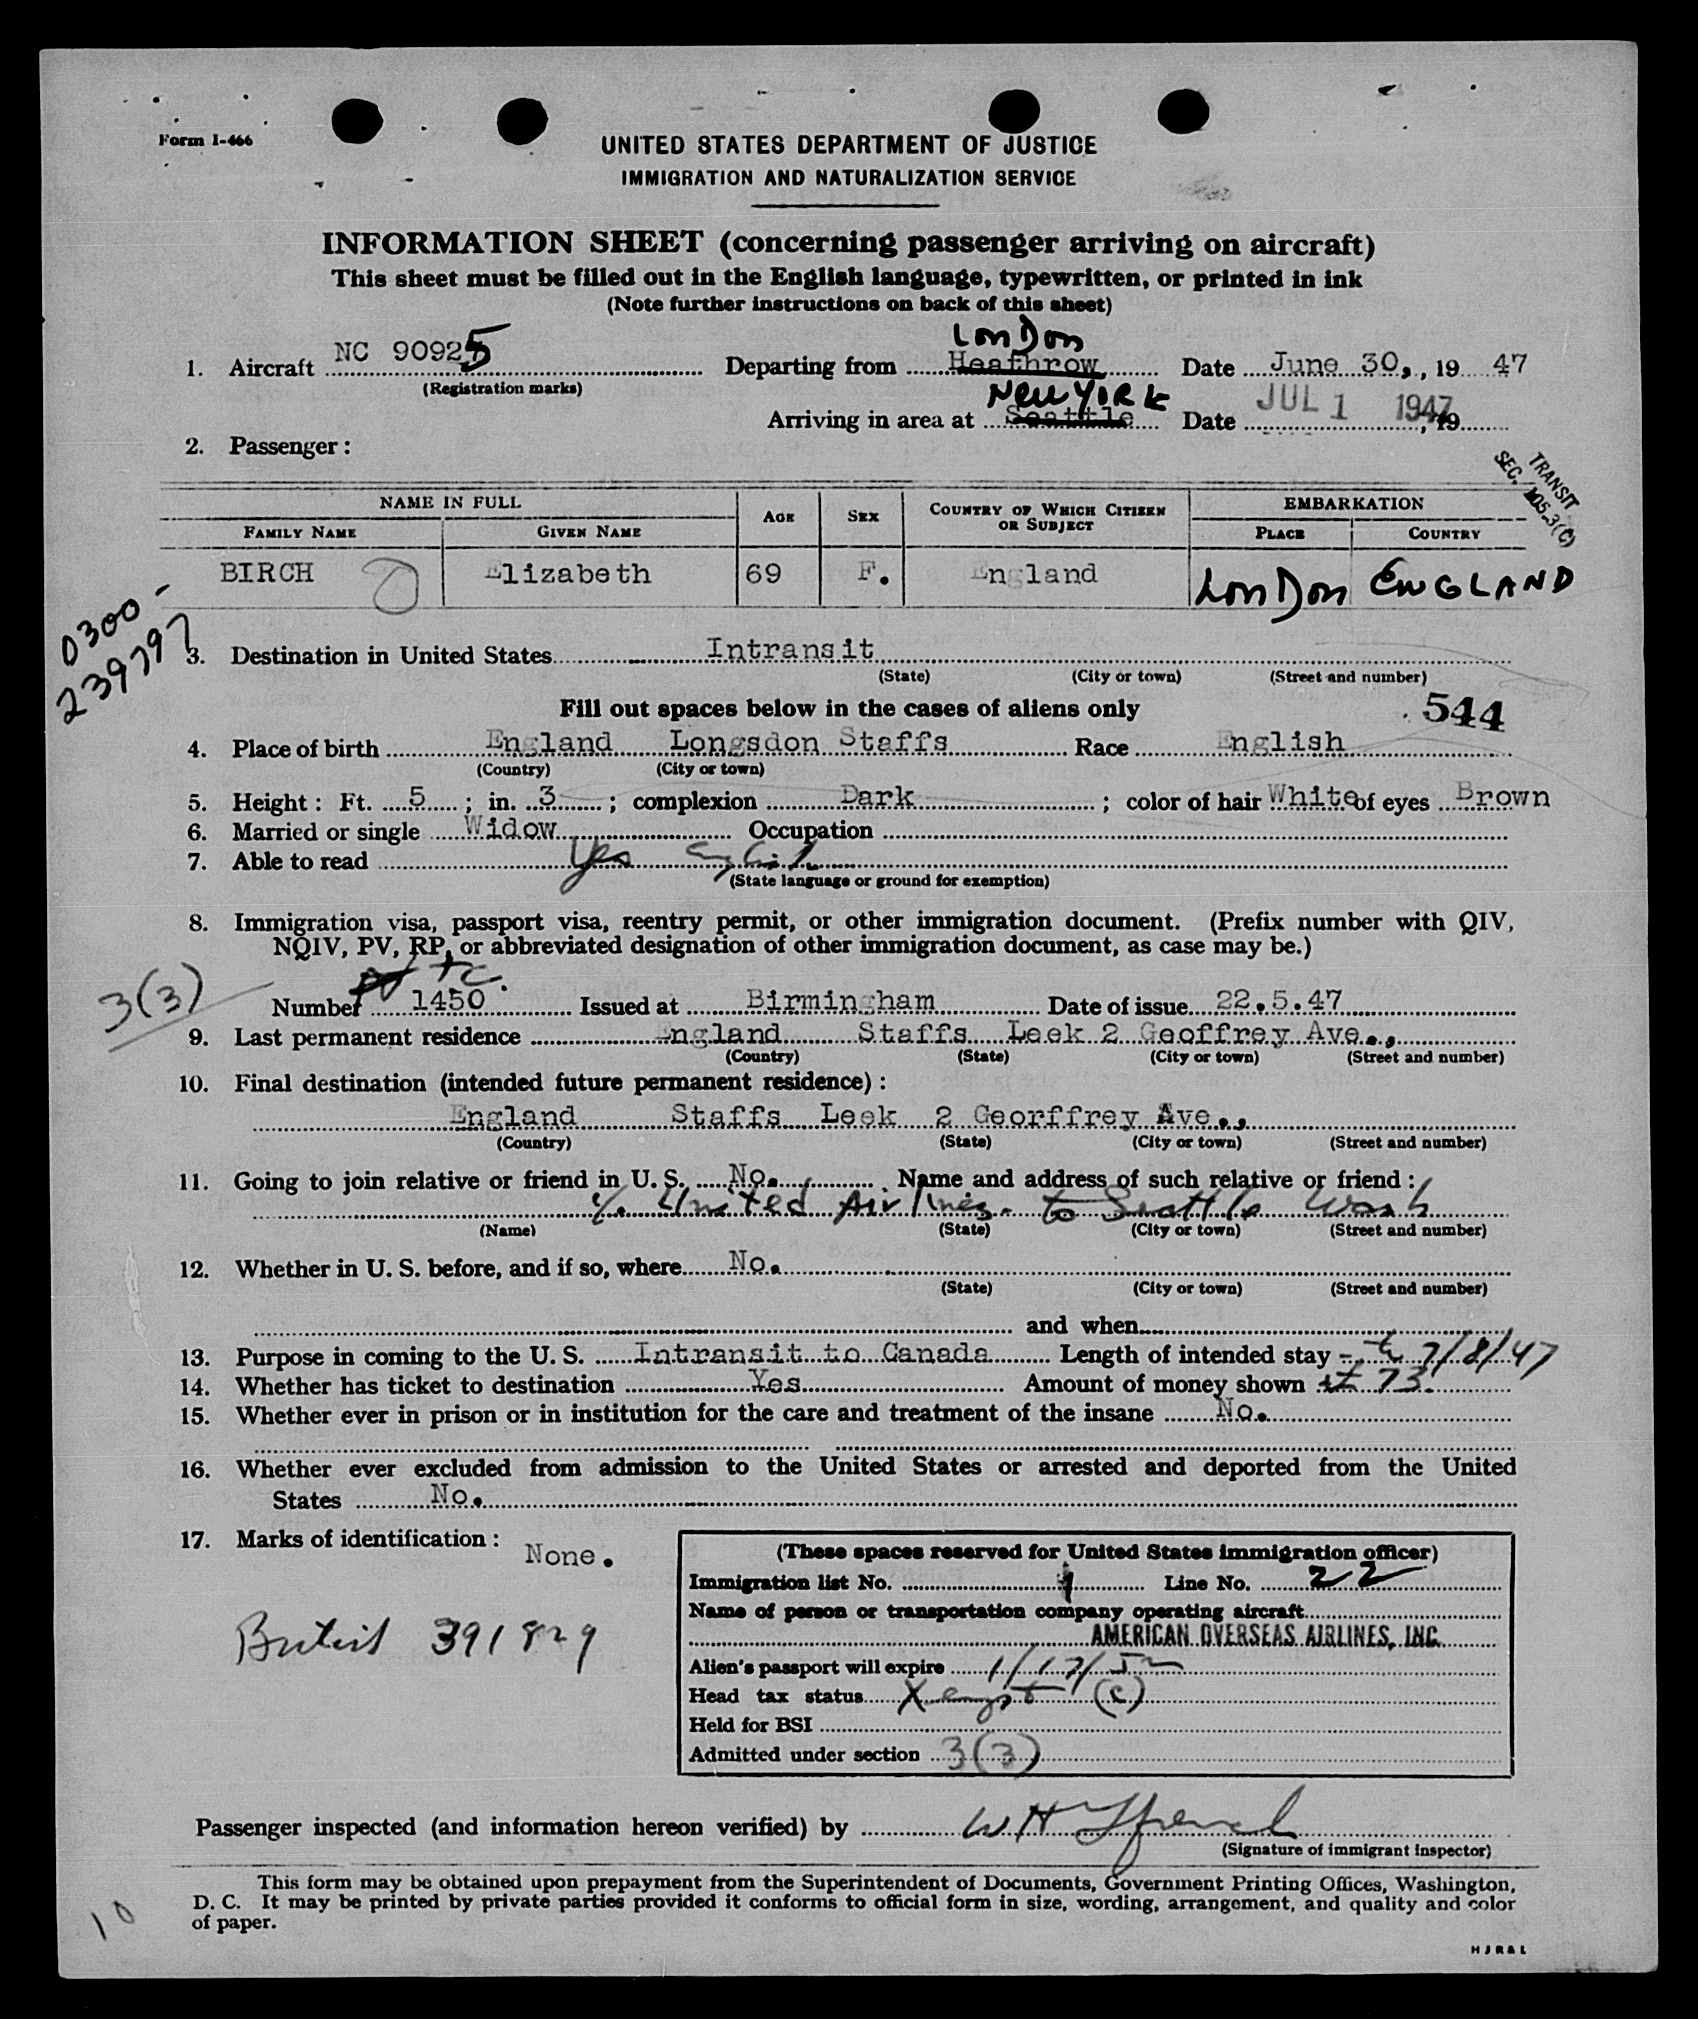 Form I-466
UNITED STATES DEPARTMENT OF JUSTICE
IMMIGRATION AND NATURALIZATION SERVICE
INFORMATION SHEET (concerning passenger arriving on aircraft)
This sheet must be filled out in the English language, typewritten, or printed in ink
(Note further instructions on back of this sheet)
LonDon
1. Aircraft NC 90925 Departing from Heathrow Date June 30, , 19 47
(Registration marks)
New YORK
Arriving in area at Seattle Date JUL 1 1947, 19
2. Passenger :
TRANSIT
SEC. 105.3(C)
NAME IN FULL AGE SEX COUNTRY OF WHICH CITIZEN OR SUBJECT EMBARKATION
FAMILY NAME GIVEN NAME PLACE COUNTRY
BIRCH Elizabeth 69 F. England LonDon ENGLAND
0300-
239797
3. Destination in United States Intransit
(State) (City or town) (Street and number)
Fill out spaces below in the cases of aliens only
544
4. Place of birth England Longsdon Staffs Race English
(Country) (City or town)
5. Height : Ft. 5 ; in. 3 ; complexion Dark ; color of hair White of eyes Brown
6. Married or single Widow Occupation
7. Able to read Yes English
(State language or ground for exemption)
8. Immigration visa, passport visa, reentry permit, or other immigration document. (Prefix number with QIV,
NQIV, PV, RP, or abbreviated designation of other immigration document, as case may be.)
3(3)
PV TC.
Number 1450 Issued at Birmingham Date of issue 22.5.47
9. Last permanent residence England Staffs Leek 2 Geoffrey Ave.,
(Country) (State) (City or town) (Street and number)
10. Final destination (intended future permanent residence) :
England Staffs Leek 2 Georffrey Ave.,
(Country) (State) (City or town) (Street and number)
11. Going to join relative or friend in U. S. No. Name and address of such relative or friend :
c/o United Airlines. to Seattle Wash
(Name) (State) (City or town) (Street and number)
12. Whether in U. S. before, and if so, where No.
(State) (City or town) (Street and number)
and when
13. Purpose in coming to the U. S. Intransit to Canada Length of intended stay 7/8/47
14. Whether has ticket to destination Yes Amount of money shown £ 73.
15. Whether ever in prison or in institution for the care and treatment of the insane No.
16. Whether ever excluded from admission to the United States or arrested and deported from the United
States No.
17. Marks of identification : None.
British 391829
(These spaces reserved for United States immigration officer)
Immigration list No. 1 Line No. 22
Name of person or transportation company operating aircraft
AMERICAN OVERSEAS AIRLINES, INC.
Alien's passport will expire 1/17/52
Head tax status Xempt (c)
Held for BSI
Admitted under section 3(3)
Passenger inspected (and information hereon verified) by W H
(Signature of immigrant inspector)
This form may be obtained upon prepayment from the Superintendent of Documents, Government Printing Offices, Washington,
D. C. It may be printed by private parties provided it conforms to official form in size, wording, arrangement, and quality and color
of paper.
10
H J R & L